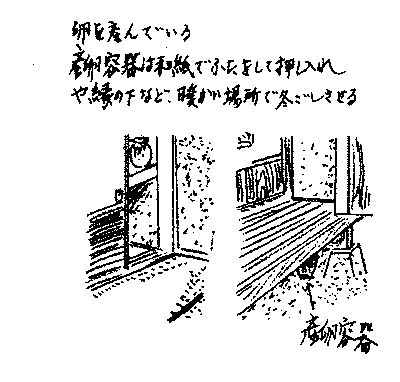 卵を産んでいる
産卵容器は和紙でふたをして押入れ
や縁の下など、暖かい場所で冬ごしさせる
産卵容器